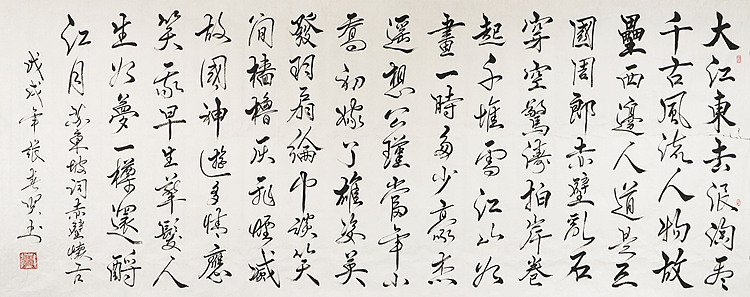 大江東去浪淘尽
千古風流人物故
壘西邊人道是三
國周郎赤壁亂石
穿空驚濤拍岸卷
起千堆雪江山如
畫一時多少豪杰
遥想公瑾當年小
喬初嫁了雄姿英
發羽扇綸巾談笑
間檣櫓灰飛煙滅
故國神遊多情應
笑我早生華髮人
生如夢一樽還酹
江月苏東坡詞赤壁懷古
戊戌年張书